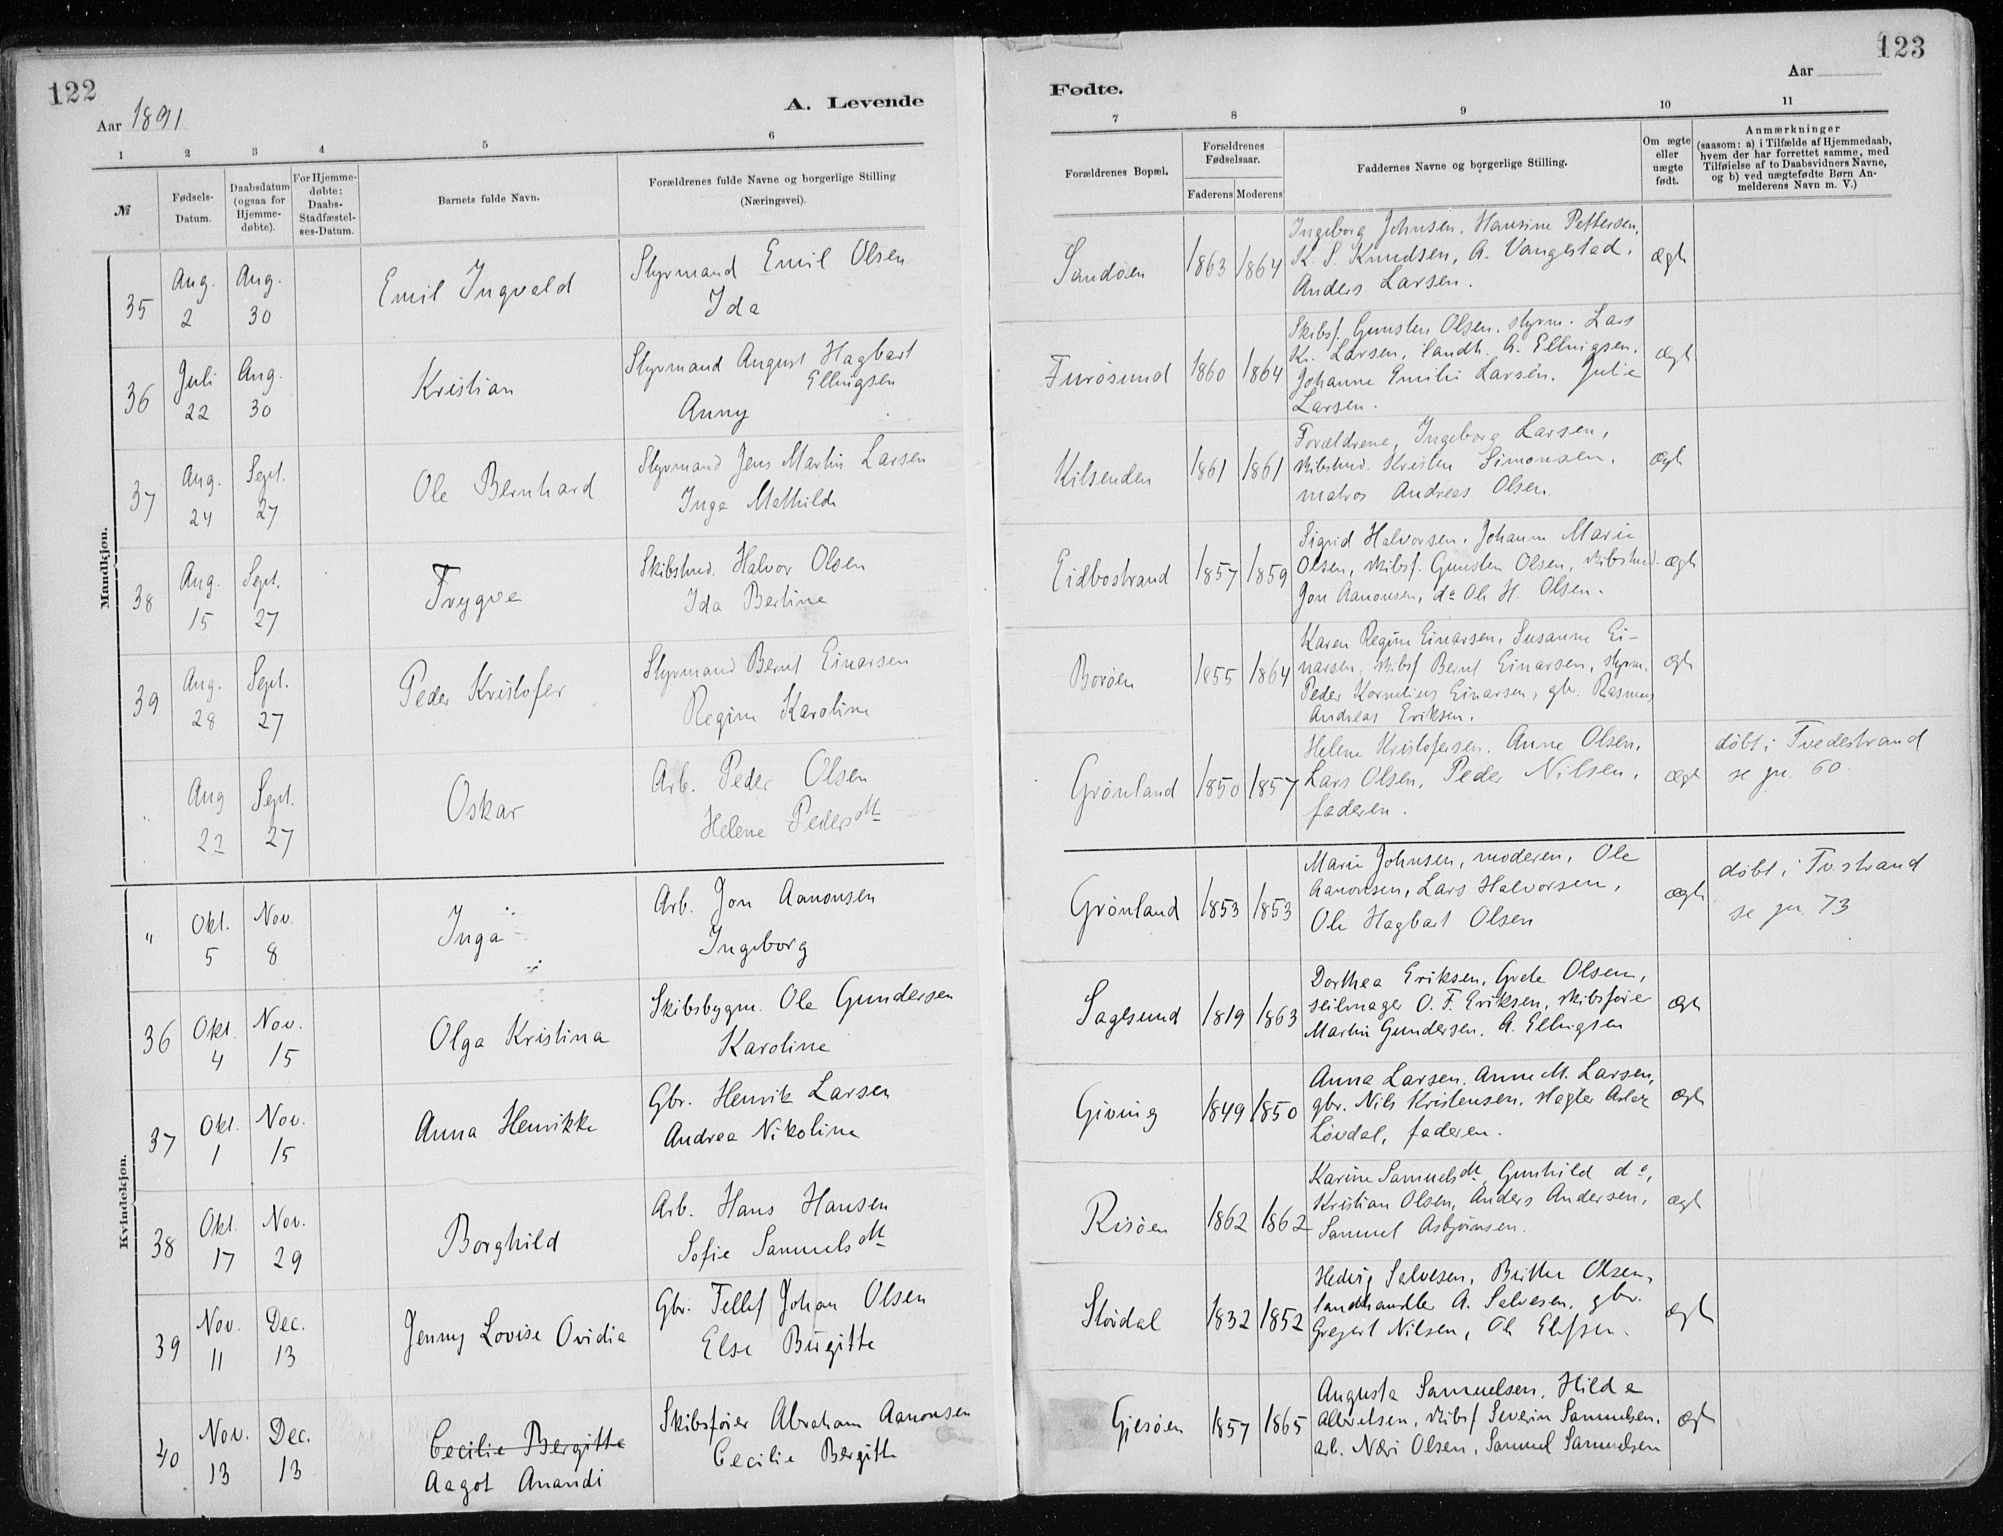 122
Aar 1891
A. Levende
1 2 3 4 5 6
№
Fødsels-
Datum.
Daabsdatum
(ogsaa for
Hjemme-
døbte).
For Hjemme-
døbte:
Daabs-
Stadfæstel-
ses-Datum.
Barnets fulde Navn.
Forældrenes fulde Navne og borgerlige Stilling
(Næringsvei).
Mandkjøn.
35 Aug. 2 Aug. 30 Emil Ingvald Styrmand Emil Olsen
Ida
36 Juli 22 Aug. 30 Kristian Styrmand August Hagbart
Ellingsen
Anny
37 Aug. 24 Sept. 27 Ole Bernhard Styrmand Jens Martin Larsen
Inga Mathilde
38 Aug. 15 Sept. 27 Trygve Skibstmd. Halvor Olsen
Ida Bertine
39 Aug. 28 Sept. 27 Peder Kristofer Styrmand Bernt Einarsen
Regine Karoline
" Aug 22 Sept. 27 Oskar Arb. Peder Olsen
Helene Pedersdtt
Kvindekjøn.
" Okt. 5 Nov. 8 Inga Arb. Jon Aanonsen
Ingeborg
36 Okt. 4 Nov. 15 Olga Kristina Skibsbygm. Ole Gundersen
Karoline
37 Okt. 1 Nov. 15 Anna Henrikke Gbr. Henrik Larsen
Andrea Nikoline
38 Okt. 17 Nov. 29 Borghild Arb. Hans Hansen
Sofie Samuelsdtt
39 Nov. 11 Dec. 13 Jenny Lovise Ovidia Gbr. Tellef Johan Olsen
Else Birgitte
40 Nov. 13 Dec. 13 Cecilie Bergitte Skibsfører Abraham Aanonsen
Aagot Anandi Cecilie Bergitte
123
Aar
Fødte.
7 8 9 10 11
Forældrenes Bopæl.
Forældrenes
Fødselsaar.
Faderens Moderens
Faddernes Navne og borgerlige Stilling.
Om ægte
eller
uægte
født.
Anmærkninger
(saasom: a) i Tilfælde af Hjemmedaab,
hvem der har forrettet samme, med
Tilføielse af to Daabsvidners Navne,
og b) ved uægtefødte Børn An-
melderens Navn m. V.)
Sandøen 1863 1864 Ingeborg Johnsen, Hansine Pettersen,
K. S. Knudsen, A. Vangestad,
Anders Larsen. ægte
Furøsund 1860 1864 Skibsf. Gunsten Olsen, styrm. Lars
Kr. Larsen, landh. A. Ellingsen,
Johanne Emilie Larsen, Julie
Larsen. ægte
Kilsenden 1861 1861 Forældrene, Ingeborg Larsen,
skibstmd. Kristen Simonsen,
matros Andreas Olsen. ægte
Eidbostrand 1857 1859 Sigrid Halvorsen, Johanne Marie
Olsen, skibsf. Gunsten Olsen, skibstmd.
Jon Aanonsen, do Ole H. Olsen. ægte
Borøen 1855 1864 Karen Regine Einarsen, Susanne Ei-
narsen, skibsf Bernt Einarsen, styrm.
Peder Kornelius Einarsen, gbr. Rasmus
Andreas Eriksen. ægte
Grønland 1850 1857 Helene Kristofersen, Anne Olsen,
Lars Olsen, Peder Nilsen,
faderen. ægte
døbt i Tvedestrand
se gu. 60.
Grønland 1853 1853 Marie Johnsen, moderen, Ole
Aanonsen, Lars Halvorsen,
Ole Hagbart Olsen ægte
døbt i Tv.strand
se gu. 73
Sagesund 1819 1863 Dorthea Eriksen, Grete Olsen,
seilmager O. F. Eriksen, skibsfører
Martin Gundersen, A. Ellingsen ægte
Giving 1849 1850 Anna Larsen, Anne M. Larsen,
gbr. Nils Kristensen, slagter
Løvdal, faderen. ægte
Risøen 1862 1862 Karine Samuelsdtt, Gunhild do,
Kristian Olsen, Anders Andersen,
Samuel Asbjørnsen. ægte
Støvdal 1832 1852 Hedvig Salvesen, Birthe Olsen,
landhandler A. Salvesen, gbr.
Gregert Nilsen, Ole Elefsen. ægte
Gjesøen 1857 1865 Augusta Samuelsen, Hilda
Albretsen, skibsf Severin Samuelsen,
arb. Næri Olsen, Samuel Samuelsen ægte